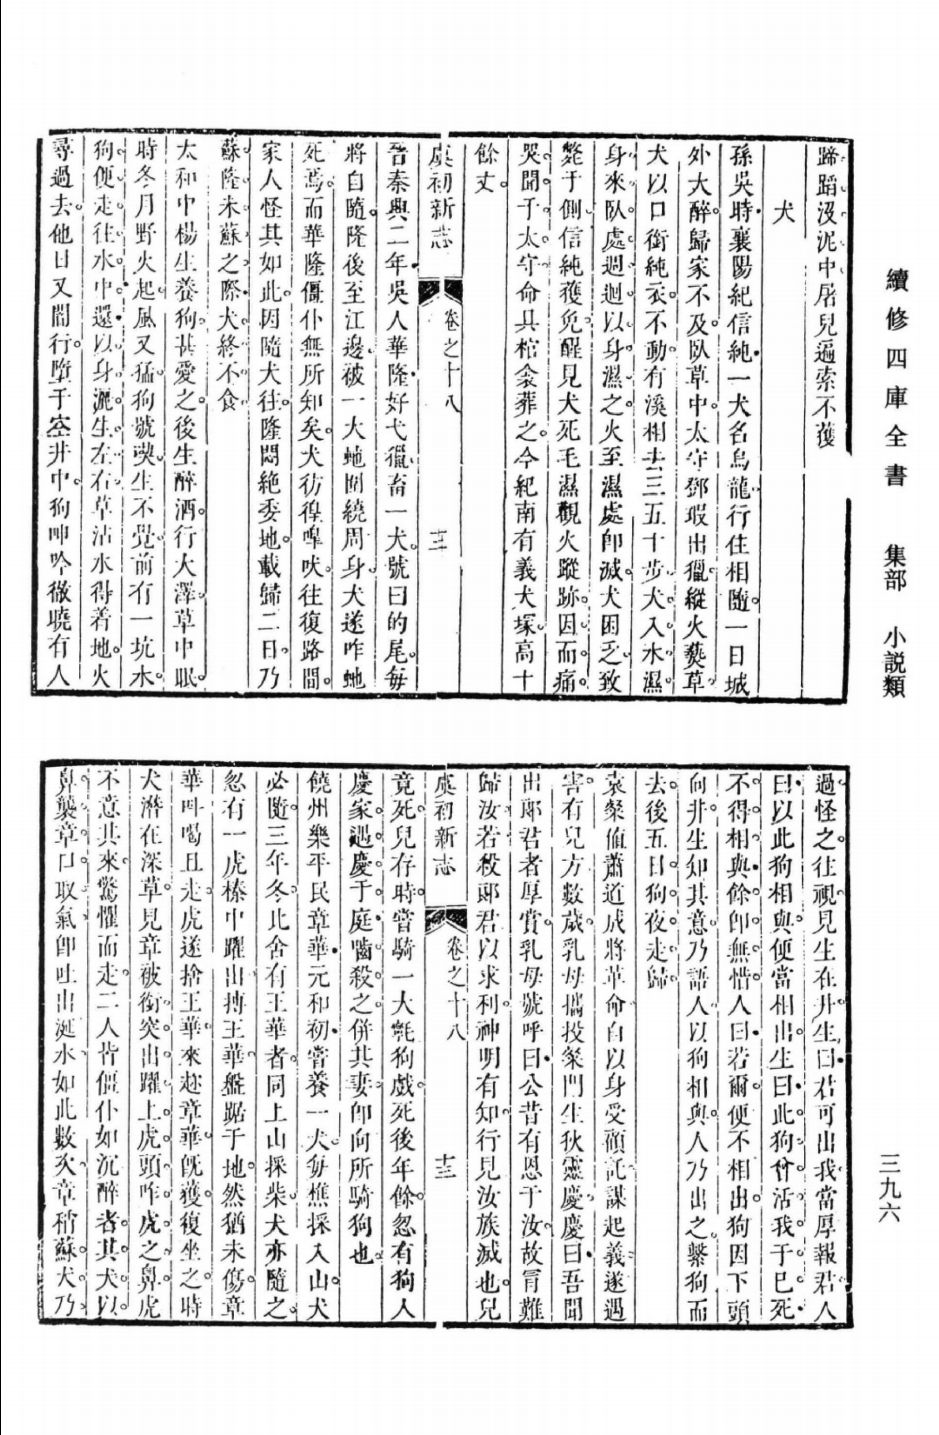 續修四庫全書　集部　小説類
蹄蹈沒泥中屠兒遍索不獲
犬
孫吳時襄陽紀信純一犬名烏龍行住相隨一日城
外大醉歸家不及臥草中太守鄧瑕出獵縱火爇草
犬以口銜純衣不動有溪相去三五十步犬入水濕
身來臥處迴迴以身濕之火至濕處卽滅犬困乏致
斃于側信純獲免醒見犬死毛濕觀火蹤跡因而痛
哭聞于太守命具棺衾葬之今紀南有義犬塚高十
餘丈
虞初新志　卷之十八　十二
晉秦興二年吳人華隆好弋獵畜一犬號曰的尾每
將自隨隆後至江邊被一大蛇圍繞周身犬遂咋蛇
死焉而華隆僵仆無所知矣犬彷徨嘷吠往復路間
家人怪其如此因隨犬往隆悶絶委地載歸二日乃
蘇隆未蘇之際犬終不食
太和中楊生養狗甚愛之後生醉酒行大澤草中眠
時冬月野火起風又猛狗號喚生不覺前有一坑水
狗便走往水中還以身灑生左右草沾水得着地火
尋過去他日又闇行墮于空井中狗呻吟徹曉有人
過怪之往視見生在井生曰君可出我當厚報君人
曰以此狗相與便當相出生曰此狗曾活我于已死
不得相與餘卽無惜人曰若爾便不相出狗因下頭
向井生知其意乃語人以狗相與人乃出之繫狗而
去後五日狗夜走歸
袁粲値蕭道成將革命自以身受顧託謀起義遂遇
害有兒方數歲乳母攜投粲門生狄靈慶慶曰吾聞
出郞君者厚賞乳母號呼曰公昔有恩于汝故冒難
歸汝若殺郞君以求利神明有知行見汝族滅也兒
虞初新志　卷之十八　十三
竟死兒存時嘗騎一大氄狗戲死後年餘忽有狗人
慶家遇慶于庭嚙殺之併其妻卽向所騎狗也
饒州樂平民章華元和初嘗養一犬每樵採入山犬
必隨三年冬比舍有王華者同上山採柴犬亦隨之
忽有一虎榛中躍出搏王華盤踞于地然猶未傷章
華呌喝且走虎遂捨王華來趂章華旣獲複坐之時
犬潛在深草見章被銜突出躍上虎頭咋虎之鼻虎
不意其來驚懼而走二人皆僵仆如沉醉者其犬以
鼻襲章口取氣卽吐出涎水如此數次章稍蘇犬乃
三九六